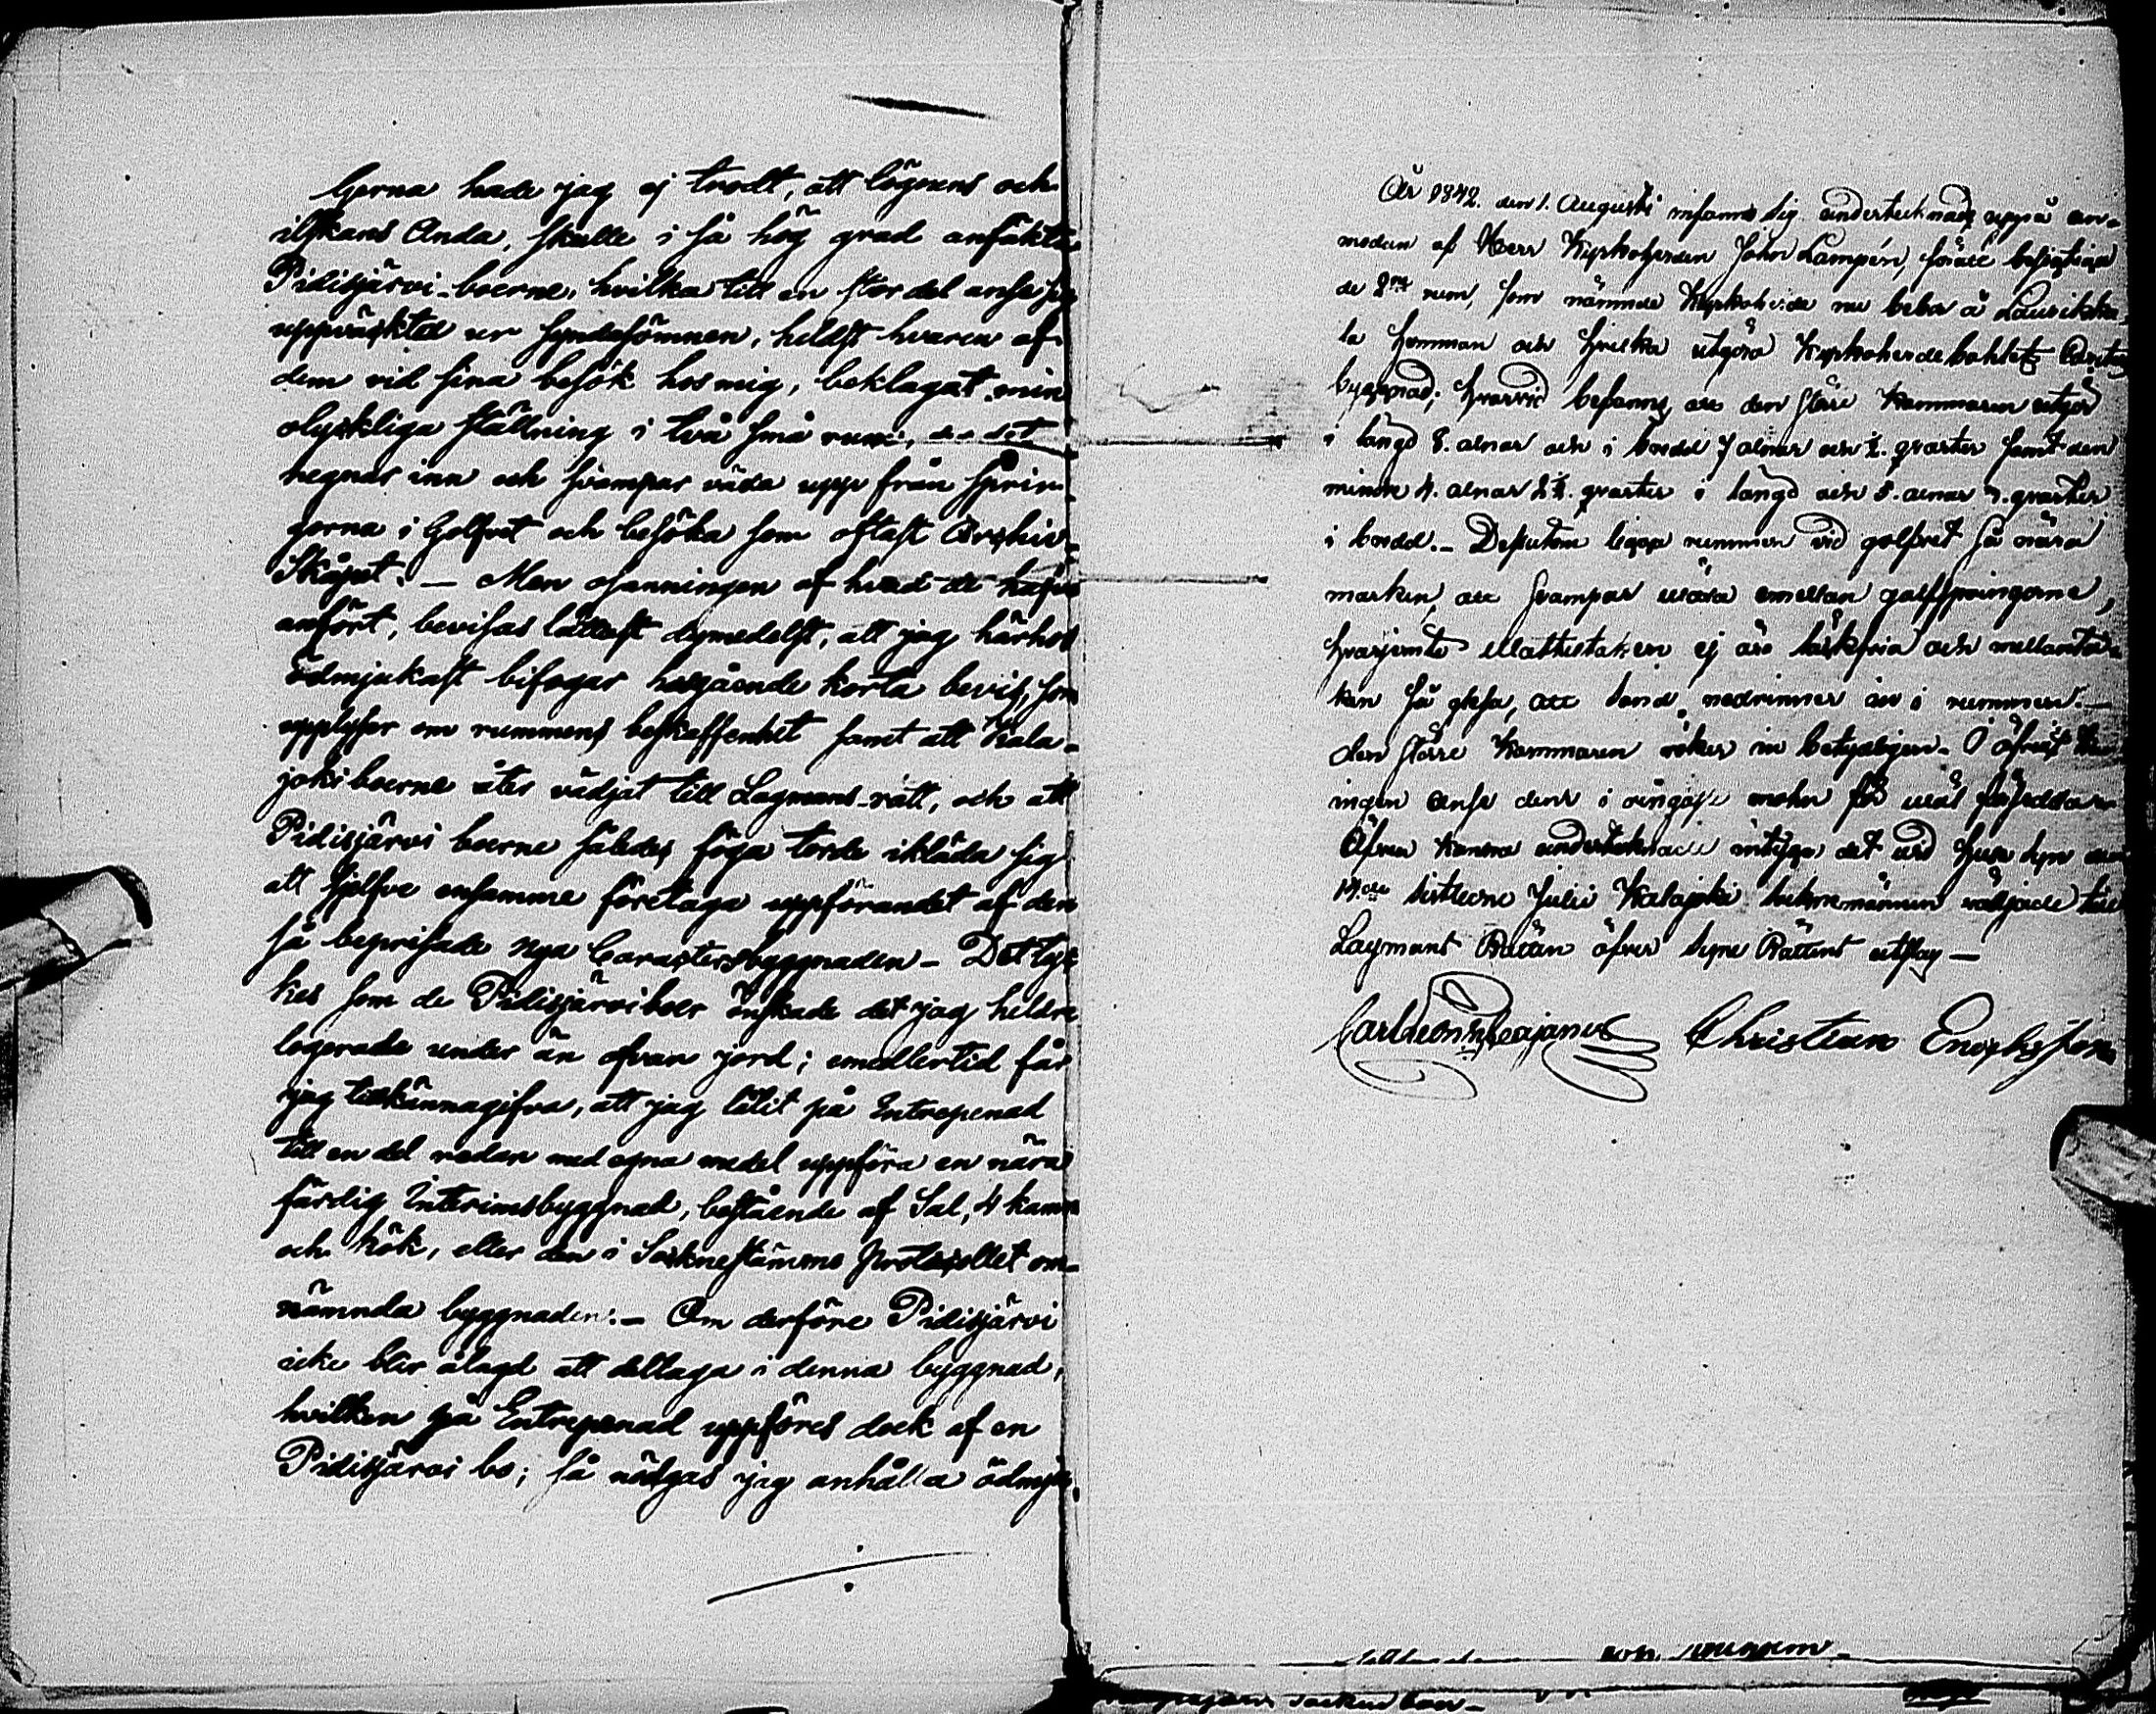 Gerna hade jag ej trodt, att lögnens och
ilskans Anda, skulle i så hög grad anfäkta
Pidisjärvi-boerne, hvilka till en stor del anse sig
uppväckta ur syndasömnen, heldst hvaren af
dem vid sina besök hos mig, beklagat min
olyckliga ställning i två små rum, der det
regnar inn och svampar växa upp från sprin-
gorna i Golfvet och besöka som oftast Archiv-
Skåpet. — Men osanningen af hvad de hafva
anfört, bevisas lättast dymedelst, att jag härhos
ödmjukast bifogar hosgående korta bevis, som
upplyser om rummens beskaffenhet samt att Kala-
joki boerne åter vädjat till Lagmans-rätt, och att
Pidisjärvi boerne således föga torde ikläda sig
att sjelfve ensamme företaga uppförandet af den
så beprisade nya Caractersbyggnaden — Det tyc-
kes som de Pidisjärviboer önskade det jag heldre
logerade under än ofvan jord; emedlertid får
jag tillkännagifva, att jag låtit på Entrepenad
till en del redan med egna medel uppföra en nära
färdig Interimsbyggnad, bestående af Sal, 4 kamr
och kök, eller den i Socknestämmo Protocollet om-
nämnda byggnaden. — Om derföre Pidisjärvi
icke blir ålagd att deltaga i denna byggnad,
hvilken på Entrepenad uppföres dock af en
Pidisjärvi bo; så nödgas jag anhålla ödmju-
År 1842. den 1. Augusti infanns sig undertecknade uppå an-
modan af Herr Kyrkoherden John Lampén, för att besigtiga
de 2ne rum, som nämnde Kyrkoherde nu bebor å
la hemman och hvilka utgöra Kyrkoherdebohlets
byggnad; hvarvid befanns att den större Kammaren utgör
i längd 8. alnar och i bredd 7 alnar och ½. qvarter samt den
mindre 4. alnar 2½. qvarter i längd och 5. alnar 3. qvarter
i bredd. — Dessutom ligga rummen vid golfvet så nära
marken, att svampar växa emellan golfspringorne,
hvarjemte Vattutaken ej äro läckfria och mellanta-
ken så glesa, att sand nedrinner in i rummen. —
den större Kammaren röker in betydligen. I öfrigt
ingen anse dem i någon mohn för
Äfven kunna undertecknade intyga det vid Husesyn den
14de sistledne Julii Kalajoki sockne männen vädjade till
Lagmans Rätten öfver Syne Rättens utslag —
Christian Enochsson